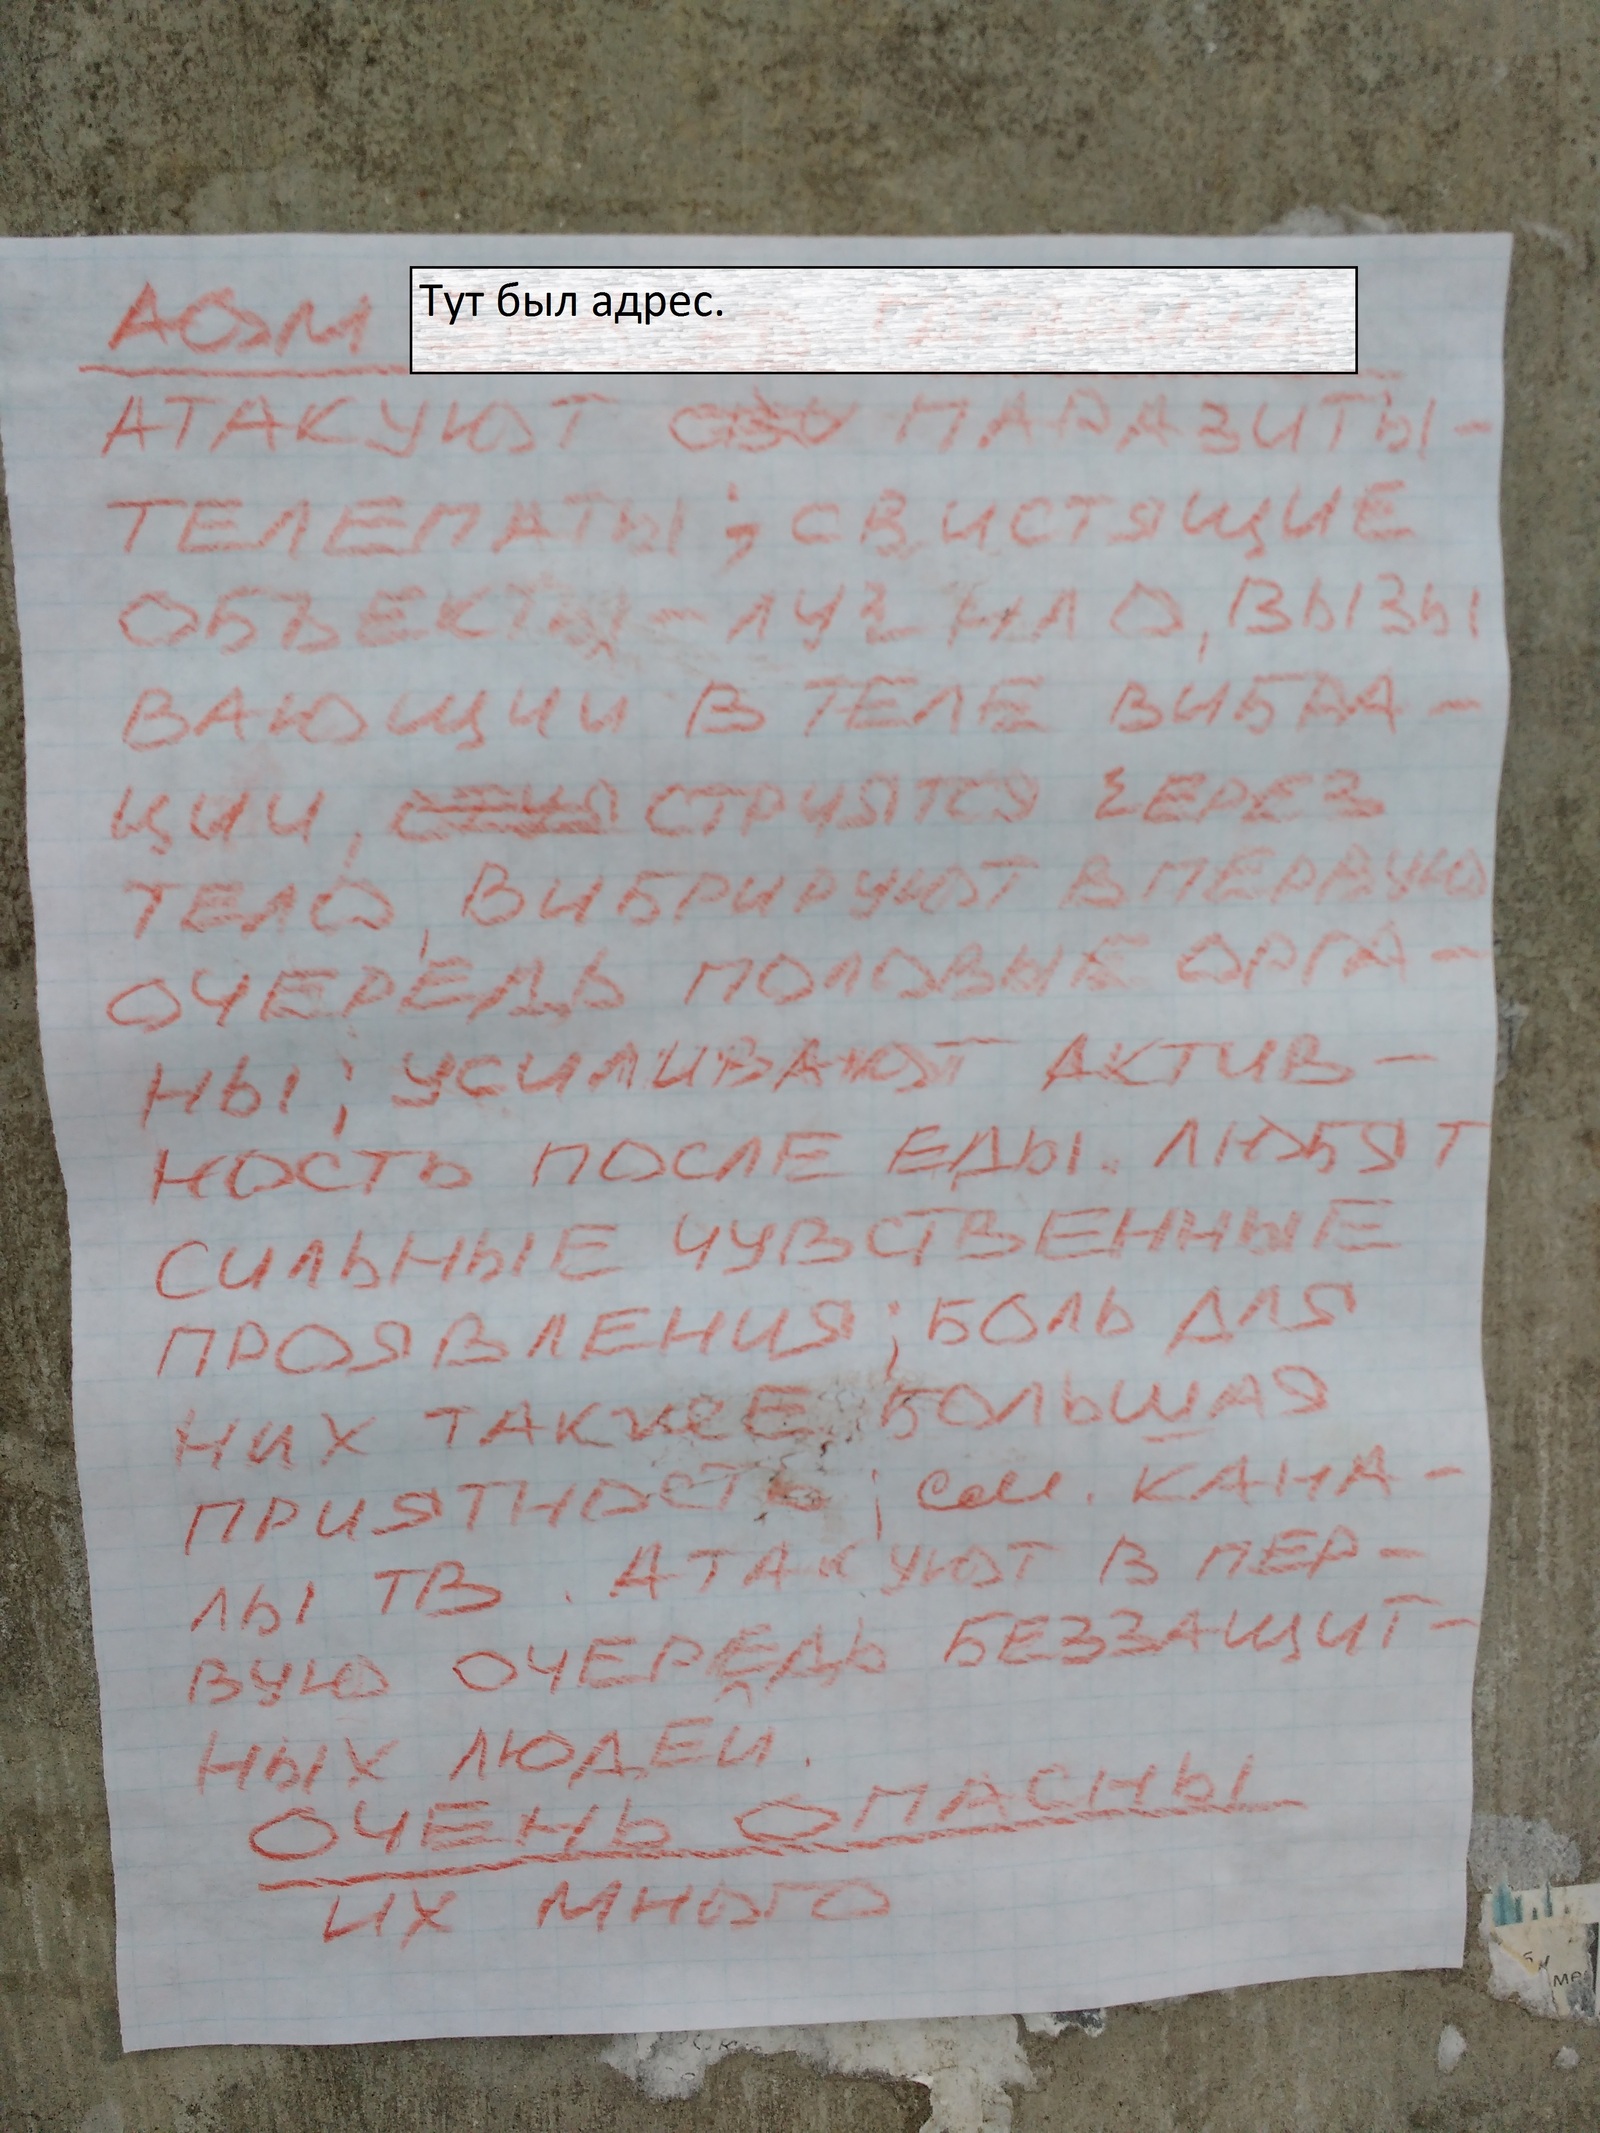 ДОМ Тут был адрес.
АТАКУЮТ ПАРАЗИТЫ-
ТЕЛЕПАТЫ; СВИСТЯЩИЕ
ОБЪЕКТЫ - ЛУЧ НЛО, ВЫЗЫ
ВАЮЩИИ В ТЕЛЕ ВИБРА-
ЦИИ, СТРУЯТСЯ ЧЕРЕЗ
ТЕЛО, ВИБРИРУЮТ В ПЕРВУЮ
ОЧЕРЕДЬ ПОЛОВЫЕ ОРГА-
НЫ; УСИЛИВАЮТ АКТИВ-
НОСТЬ ПОСЛЕ ЕДЫ. ЛЮБЯТ
СИЛЬНЫЕ ЧУВСТВЕННЫЕ
ПРОЯВЛЕНИЯ; БОЛЬ ДЛЯ
НИХ ТАКЖЕ БОЛЬШАЯ
ПРИЯТНОСТЬ; см. КАНА-
ЛЫ ТВ. АТАКУЮТ В ПЕР-
ВУЮ ОЧЕРЕДЬ БЕЗЗАЩИТ-
НЫХ ЛЮДЕЙ.
ОЧЕНЬ ОПАСНЫ
ИХ МНОГО